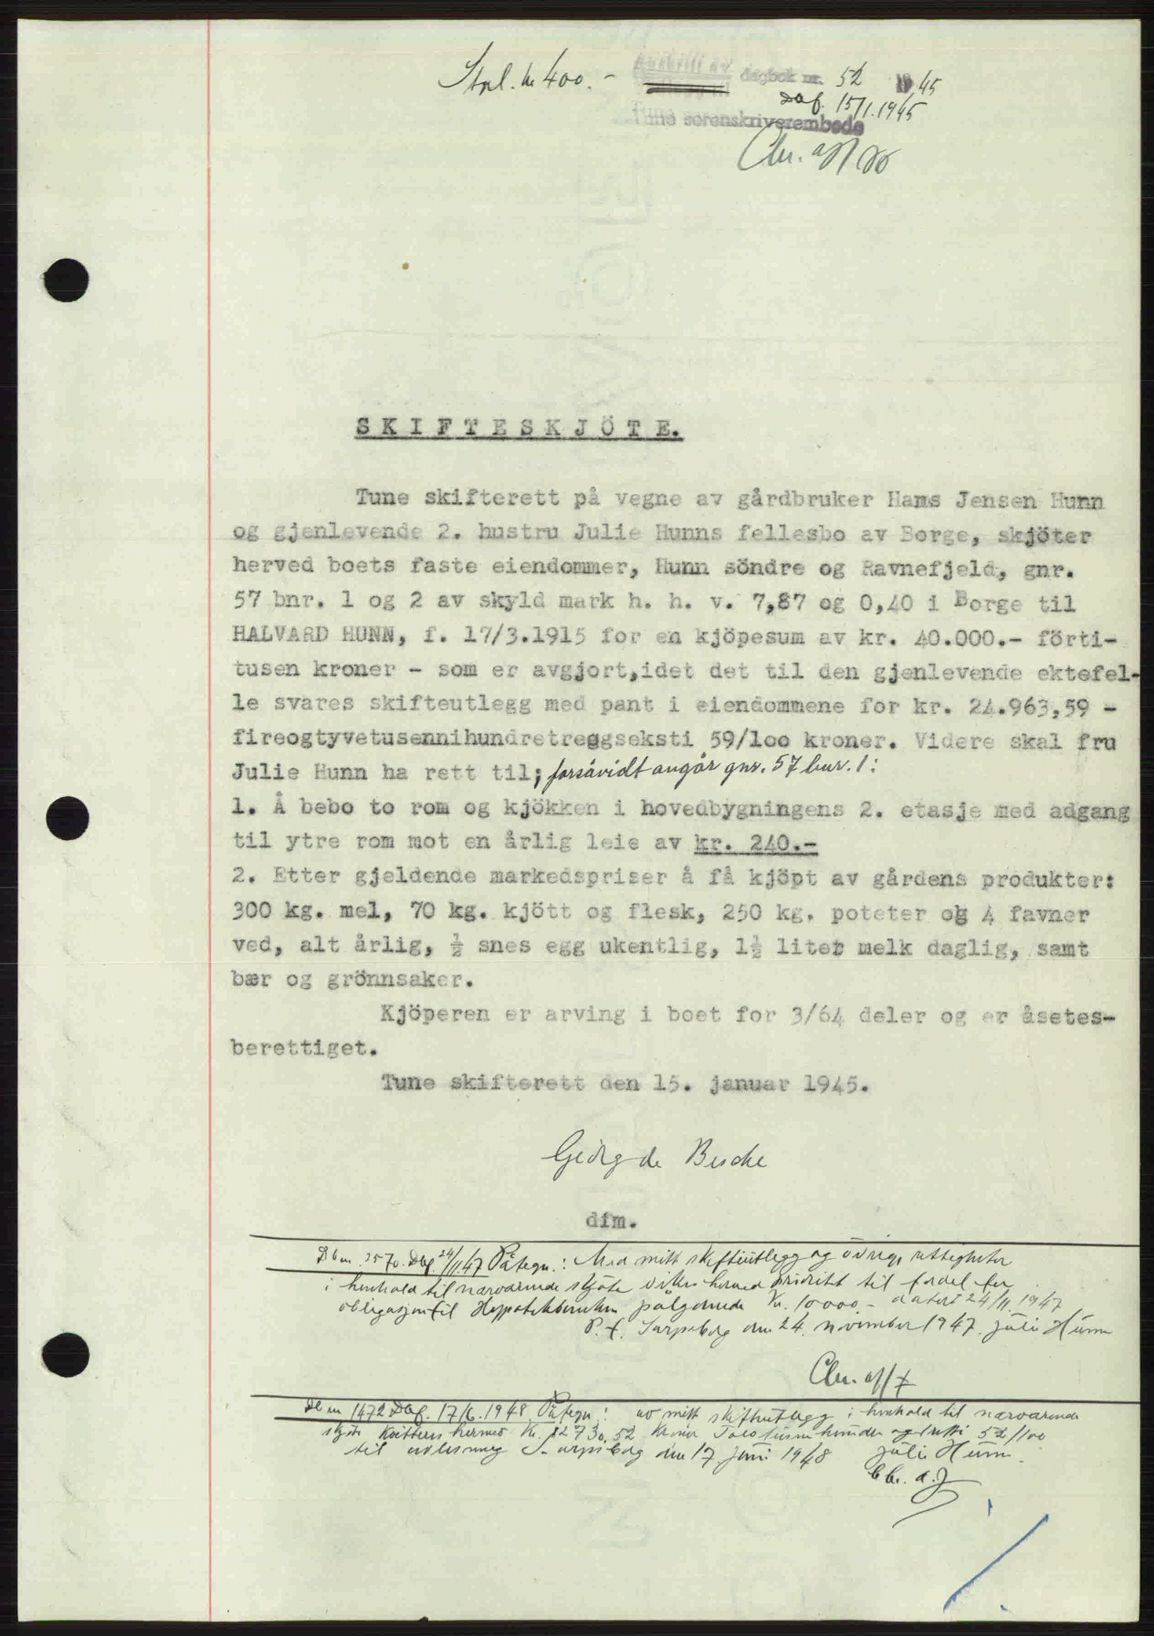 Stpl. kr 400.- Avskrift av dagbok nr. 52 1945
Dagf. 15/1.1945
Tune sorenskriverembede
SKIFTESKJÖTE.
Tune skifterett på vegne av gårdbruker Hans Jensen Hunn
og gjenlevende 2. hustru Julie Hunns fellesbo av Borge, skjöter
herved boets faste eiendommer, Hunn söndre og Ravnefjeld, gnr.
57 bnr. 1 og 2 av skyld mark h. h. v. 7,87 og 0,40 i Borge til
HALVARD HUNN, f. 17/3.1915 for en kjöpesum av kr. 40.000.- förti-
tusen kroner - som er avgjort,idet det til den gjenlevende ektefel-
le svares skifteutlegg med pant i eiendommene for kr. 24.963,59 -
fireogtyvetusennihundretreogseksti 59/100 kroner. Videre skal fru
Julie Hunn ha rett til; forsåvidt angår gnr. 57 bnr. 1:
1. Å bebo to rom og kjökken i hovedbygningens 2. etasje med adgang
til ytre rom mot en årlig leie av kr. 240.-
2. Etter gjeldende markedspriser å få kjöpt av gårdens produkter:
300 kg. mel, 70 kg. kjött og flesk, 250 kg. poteter og 4 favner
ved, alt årlig, ½ snes egg ukentlig, 1½ liter melk daglig, samt
bær og grönnsaker.
Kjöperen er arving i boet for 3/64 deler og er åsetes-
berettiget.
Tune skifterett den 15. januar 1945.
Georg de Besche
dfm.
Db nr. 3570. Dagf. 24/11 47 Påtegn.: Med mitt skifteutlegg og övrige rettigheter
i henhold til nærværende skjöte vikes herved prioritet til fordel for
obligasjon til Hypotekbanken pålydende kr. 10000.- datert 24/11.1947
P.t. Sarpsborg den 24. november 1947. Julie Hunn
Db nr 1472 Dagf. 17/6.1948 Påtegn: av mitt skifteutlegg i henhold til nærværende
skjöte kvitteres hermed kr. 12730,52 kroner Tolvtusensyvhundre og tretti 52/100
til avlysning Sarpsborg den 17 juni 1948 Julie Hunn.